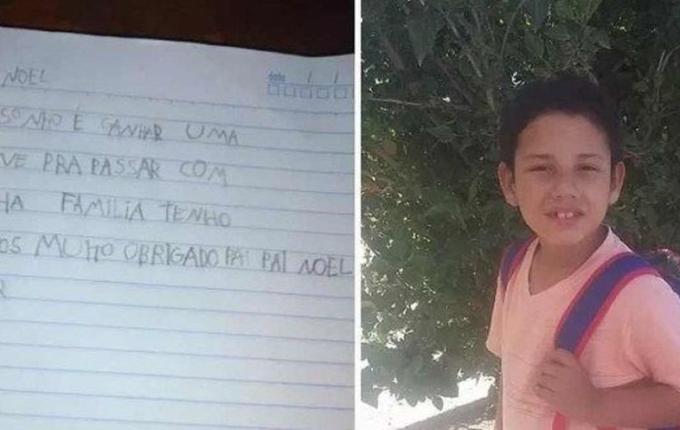 NOEL
data / /
SONHO É GANHAR UMA
VE PRA PASSAR COM
HA FAMILIA TENHO
OS MUITO OBRIGADO PAI PAI NOEL
R